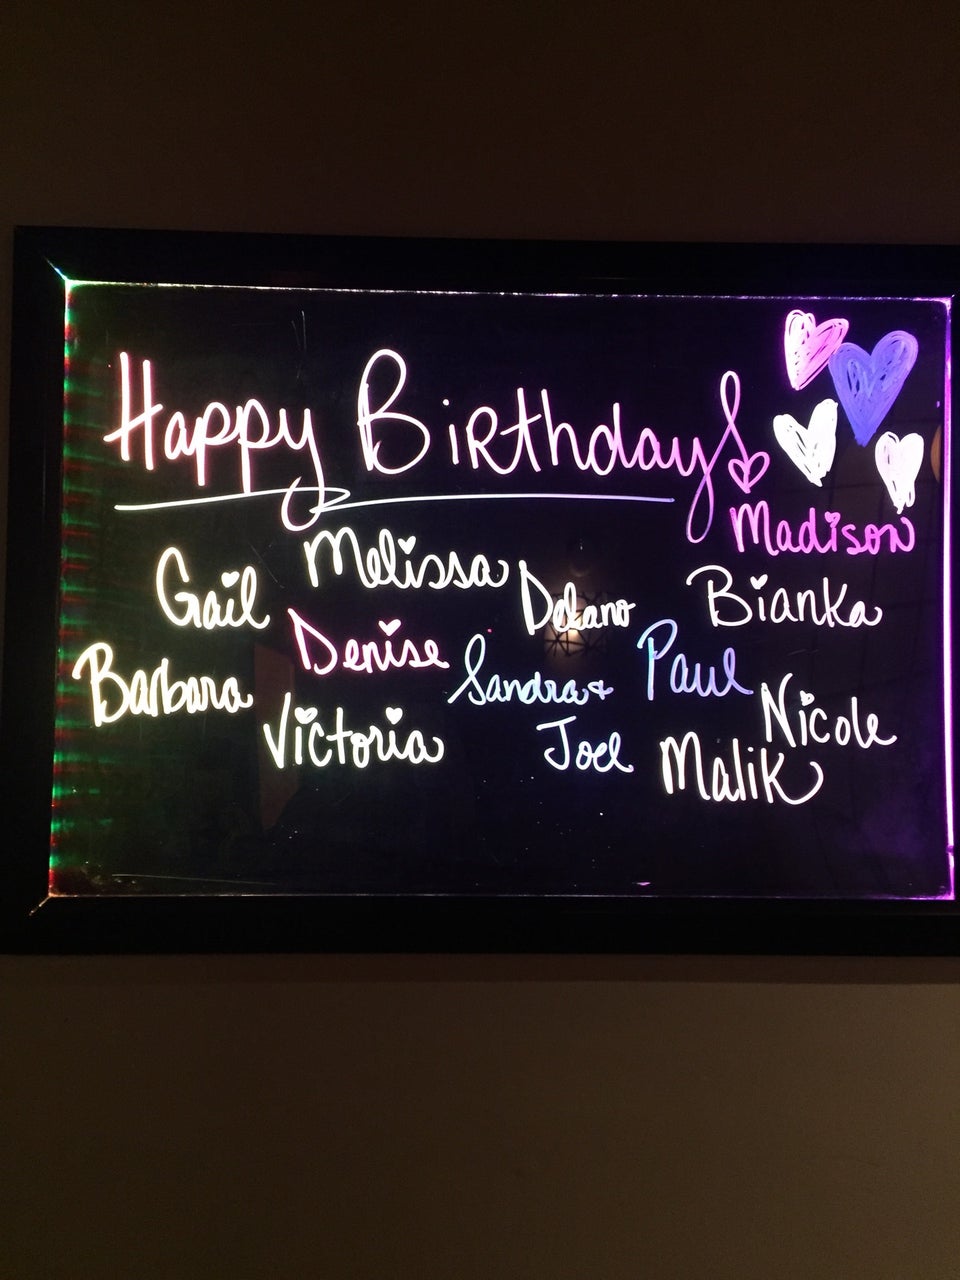 Happy Birthday!
Madison
Gail Melissa Dekano Bianka
Barbara Denise Sandra & Paul
Victoria Joel Malik Nicole